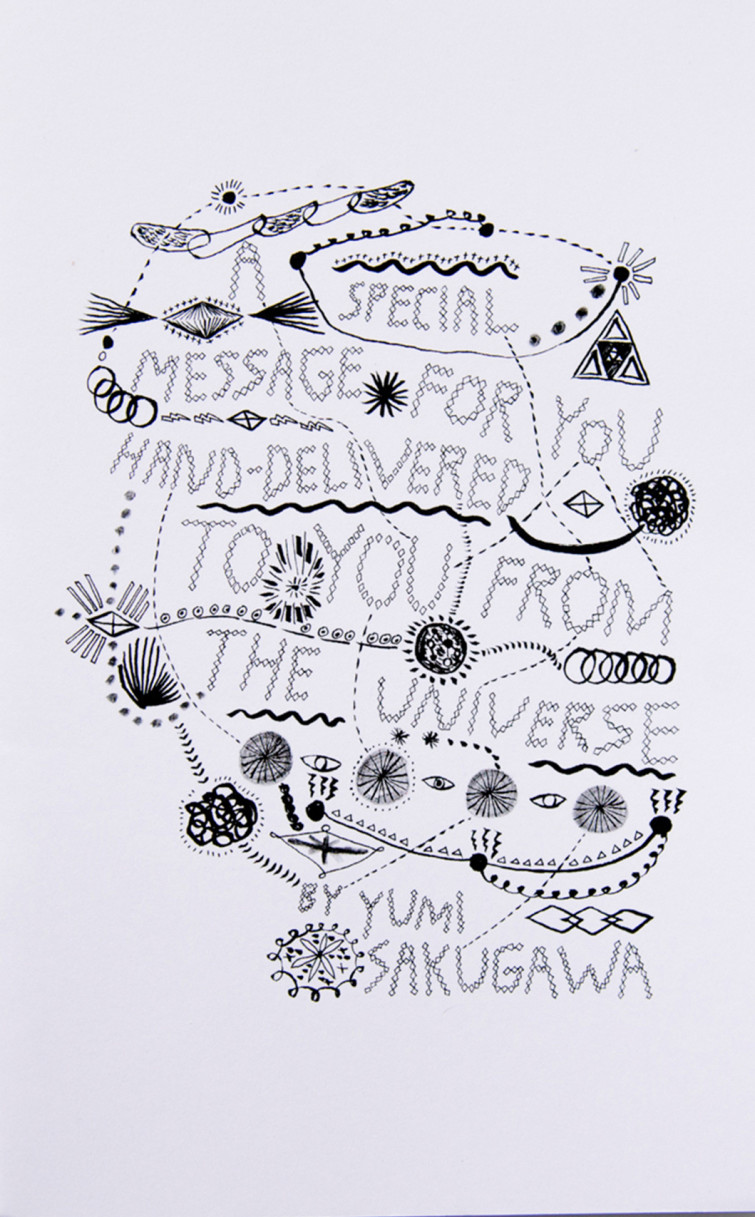 A
SPECIAL
MESSAGE FOR YOU
HAND-DELIVERED
TO YOU FROM
THE UNIVERSE
BY YUMI
SAKUGAWA